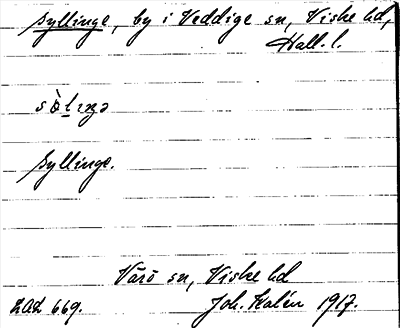 Syllinge, by i Veddige sn, Viske hd,
Hall. l.
sö̀lıŋə
Syllinge.
Värö sn, Viske hd
LAL 669. Joh. Kalén 1917.